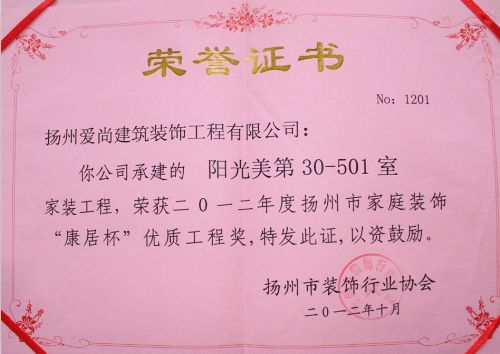 荣誉证书
No: 1201
扬州爱尚建筑装饰工程有限公司：
你公司承建的 阳光美第30-501室
家装工程，荣获二0一二年度扬州市家庭装饰
“康居杯”优质工程奖，特发此证，以资鼓励。
扬州市装饰行业协会
二0一二年十月